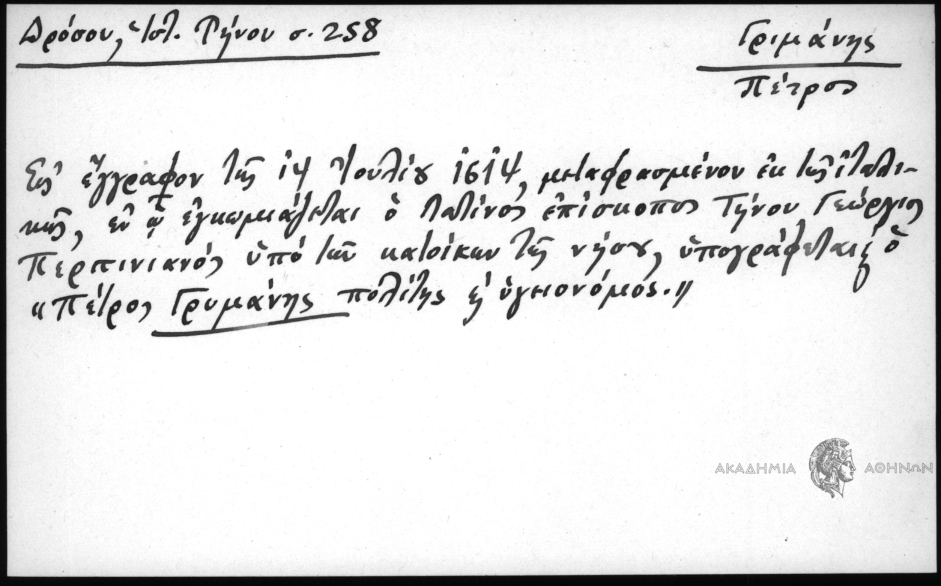 Δρόσου, Ἱστ. Τήνου σ. 258
Γριμάνης
Πέτρος
Εἰς ἔγγραφον τῆς 14 Ἰουλίου 1614, μεταφρασμένον ἐκ τῆς ἰταλι-
κῆς, ἐν ᾧ ἐγκωμιάζεται ὁ Λατῖνος ἐπίσκοπος Τήνου Γεώργιος
Περπινιανός ὑπό τῶν κατοίκων τῆς νήσου, ὑπογράφεται καὶ ὁ
«Πέτρος Γρυμάνης πολίτης καὶ ὑγειονόμος.»
ΑΚΑΔΗΜΙΑ ΑΘΗΝΩΝ